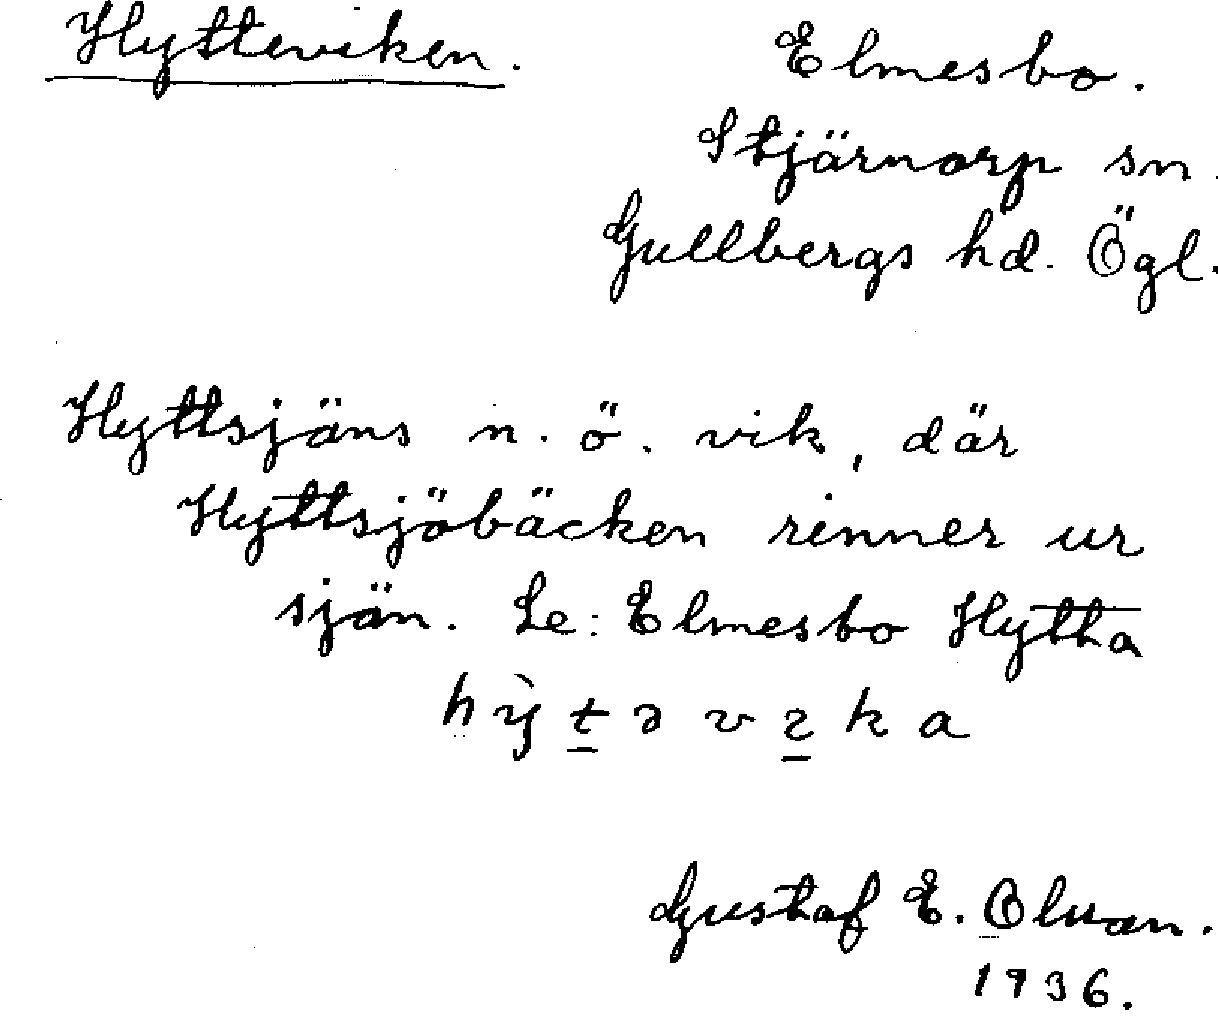 Hytteviken. Elmesbo.
Stjärnorp sn.
Gullbergs hd. Ögl.
Hyttsjäns n. ö. vik, där
Hyttsjöbäcken rinner ur
sjän. Le: Elmesbo Hytta
hỳtəvɩka
Gustaf E. Olsson.
1936.